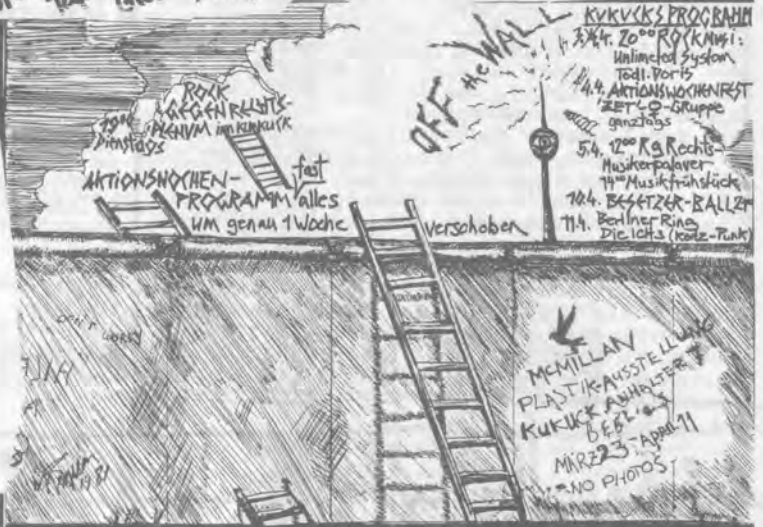 ROCK
GEGEN RECHTS-
PLENUM im KUKUCK
19°° Dienstags
AKTIONSWOCHEN-
PROGRAMM fast alles
um genau 1 Woche verschoben
OFF the WALL
KUKUCKS PROGRAMM
20°° ROCKMUSI:
Unlimeted System
Tödl. Doris
4.4. AKTIONSWOCHENFEST
-Gruppe
ganztags
5.4. 12°° RgRechts-
Musikerpalaver
14°° Musikfrühstück
10.4. BESETZER-BALL
11.4. Berliner Ring
Die Ichs (Kotz-Punk)
DON'T WORRY
1981
McMILLAN
PLASTIK-AUSSTELLUNG
KUKUCK ANHALTER
BERLIN
MÄRZ 23-APRIL 11
NO PHOTOS